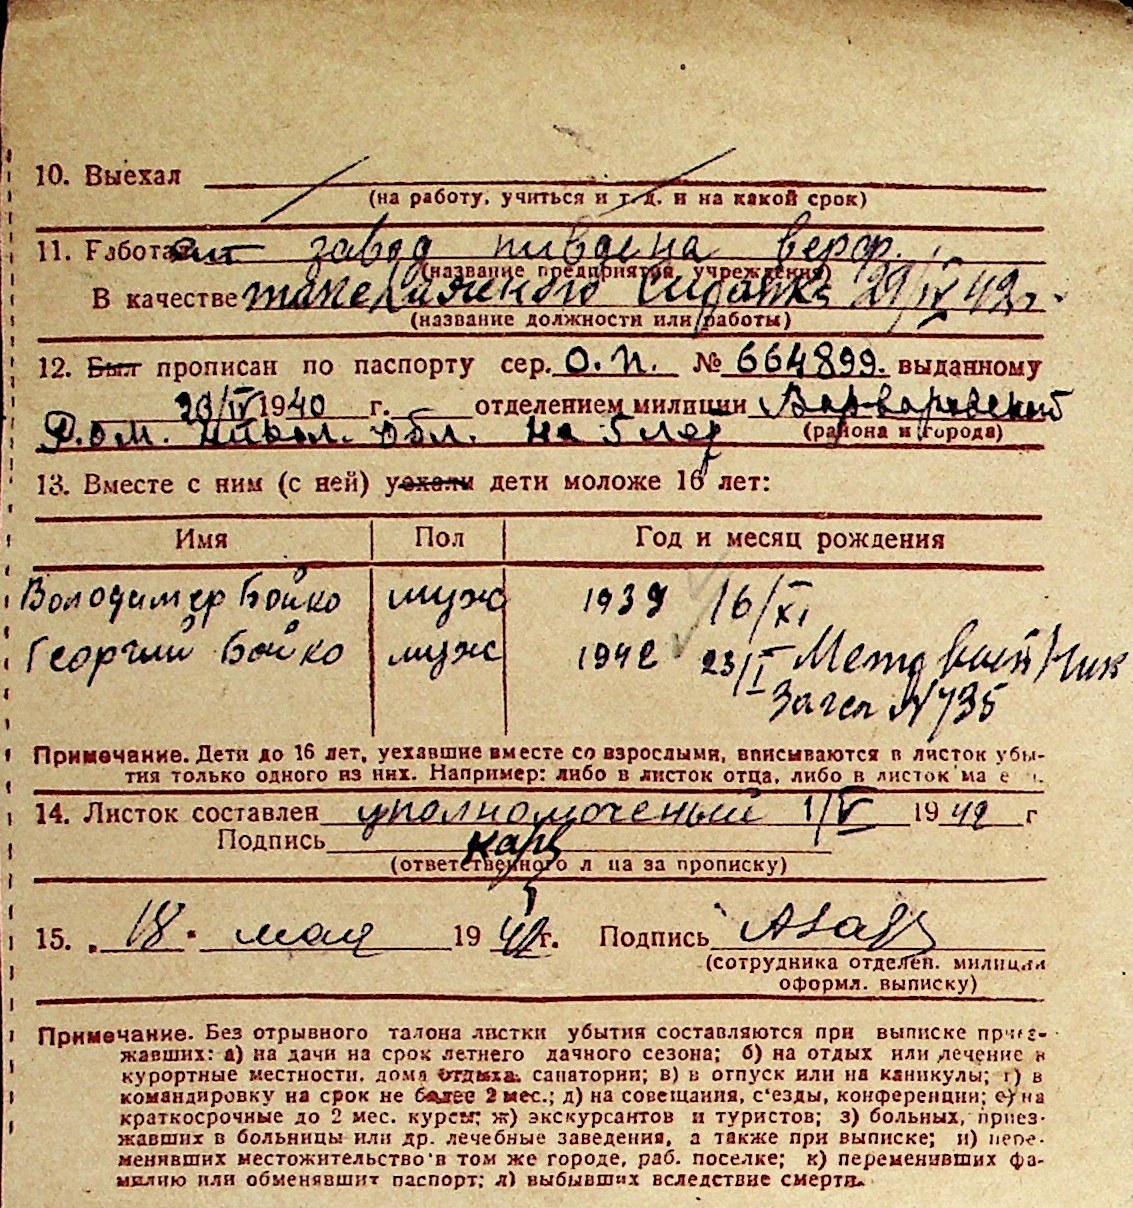 10. Выехал
(на работу, учиться и т. д. и на какой срок)
11. Работает завод пивдена верф.
(название предприятия, учреждения)
В качестве такелажного 29/IV 42 г.
(название должности или работы)
12. Был прописан по паспорту сер. О.П. № 664899. выданному
20/IV 1940 г. отделением милиции Варваровский
Р.О.М. Никол. обл. на 5 лет (района и города)
13. Вместе с ним (с ней) уехали дети моложе 16 лет:
Имя Пол Год и месяц рождения
Володимер Бойко муж 1939 16/XI
Георгий Бойко муж 1942 23/I Метр
N 735
Примечание. Дети до 16 лет, уехавшие вместе со взрослыми, вписываются в листок убы-
тия только одного из них. Например: либо в листок отца, либо в листок ма е и.
14. Листок составлен уполномоченый 1/V 1942 г
Подпись
(ответственного л ца за прописку)
15. „18" мая 1942 г. Подпись
(сотрудника отделен. милиции
оформл. выписку)
Примечание. Без отрывного талона листки убытия составляются при выписке приез-
жавших: а) на дачи на срок летнего дачного сезона; б) на отдых или лечение в
курортные местности, дома отдыха, санатории; в) в отпуск или на каникулы; г) в
командировку на срок не более 2 мес.; д) на совещания, с'езды, конференции; е) на
краткосрочные до 2 мес. курсы; ж) экскурсантов и туристов; з) больных, приез-
жавших в больницы или др. лечебные заведения, а также при выписке; и) пере-
менивших местожительство в том же городе, раб. поселке; к) переменивших фа-
милию или обменявших паспорт; л) выбывших вследствие смерти.